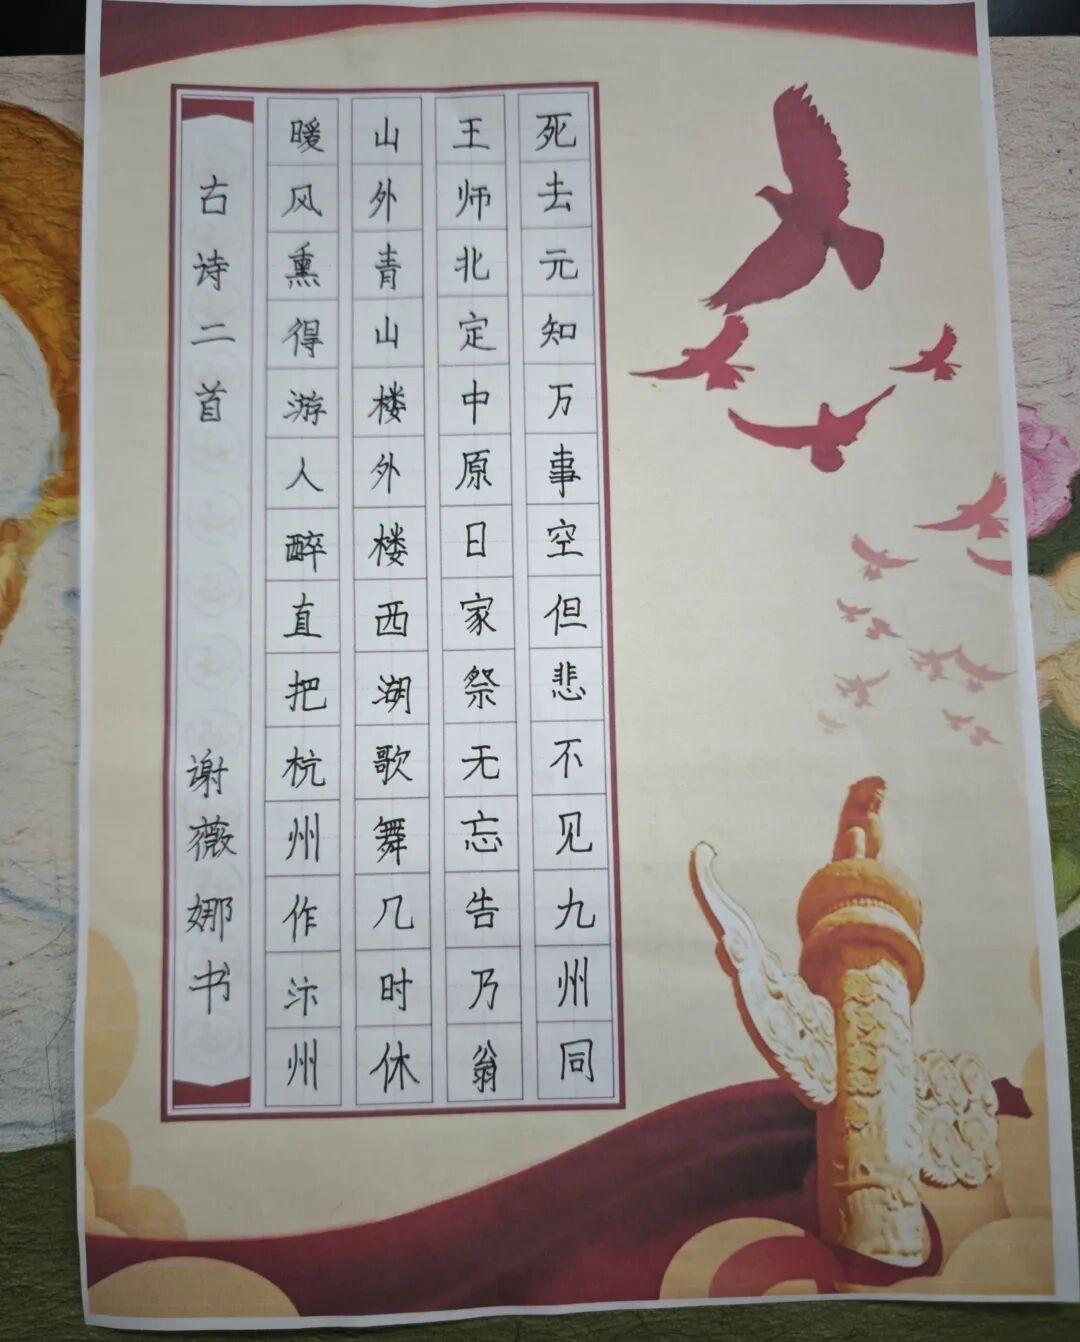 死去元知万事空但悲不见九州同
王师北定中原日家祭无忘告乃翁
山外青山楼外楼西湖歌舞几时休
暖风熏得游人醉直把杭州作汴州
古诗二首 谢薇娜书